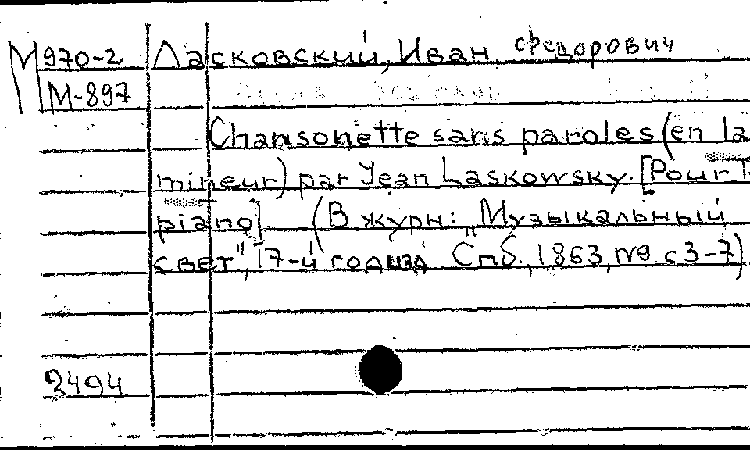 М 970-2 Ласковский, Иван Федорович
М-897
Chansonette sans paroles (en la
mineur) par Jean Laskowsky. [Pour l
piano] (В журн: "Музыкальный
свет", 17-й год изд Спб., 1863, № 9 с 3-7)
2494